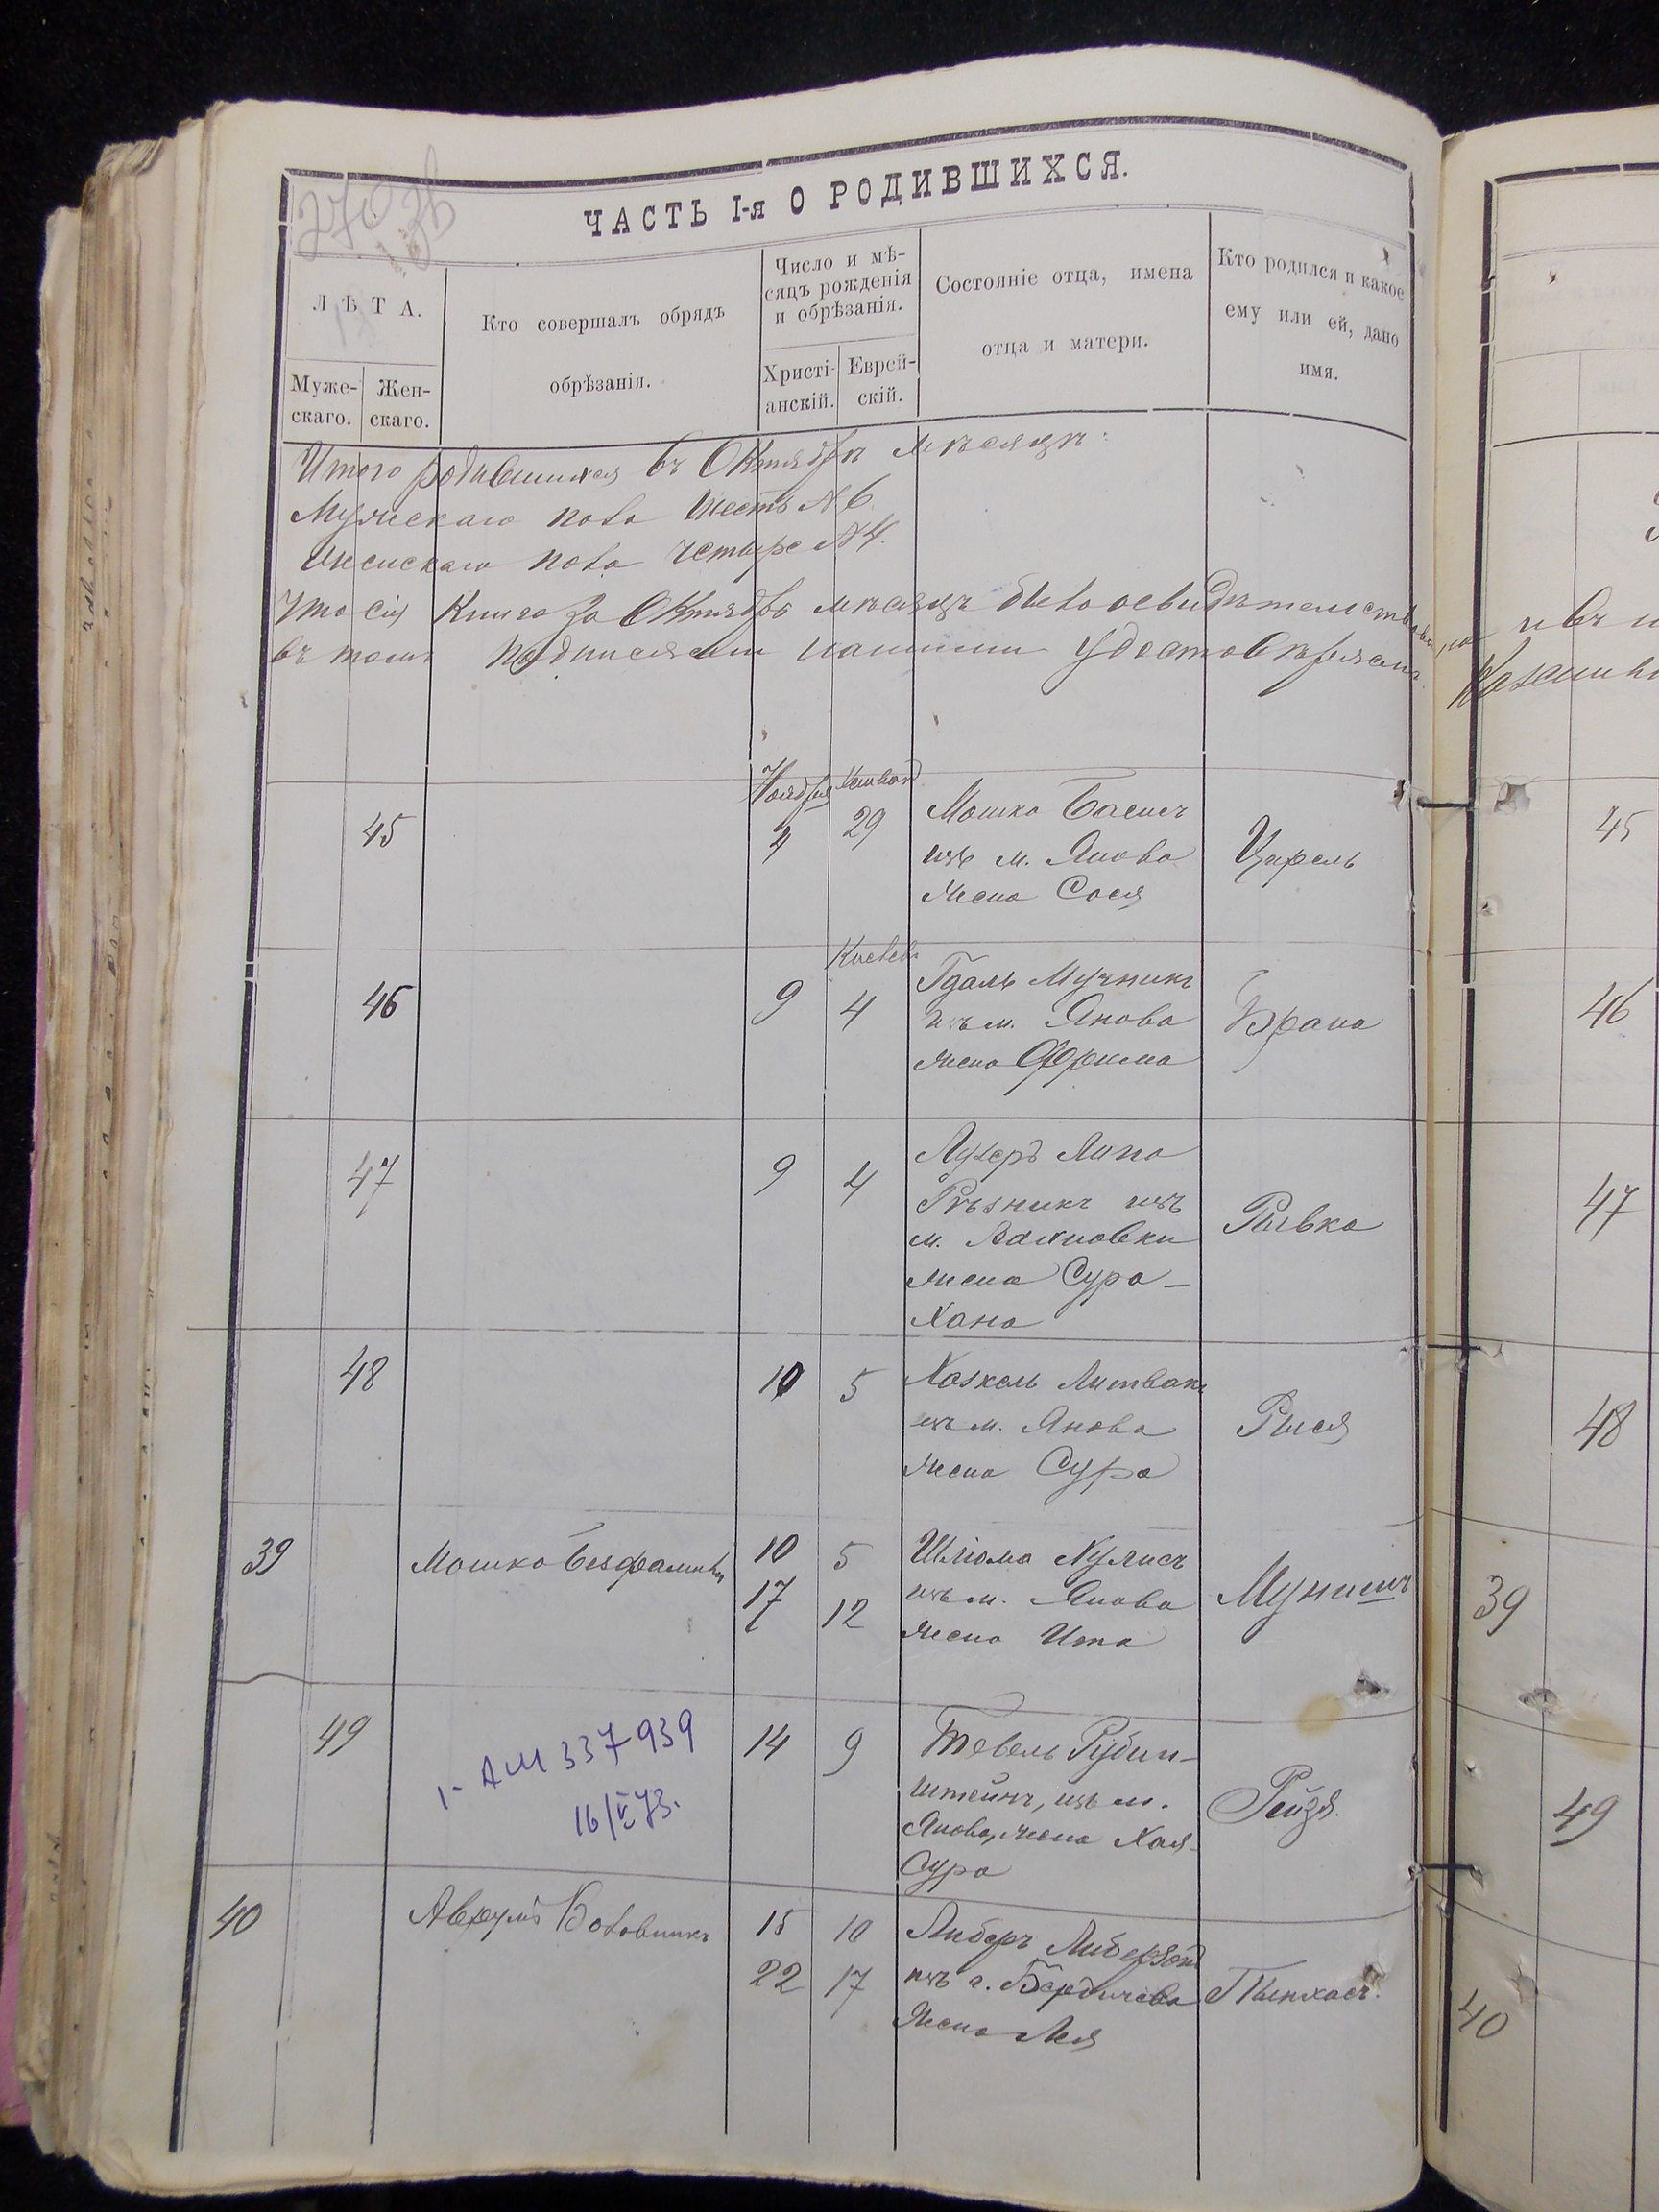 270
ЧАСТЬ I-я О РОДИВШИХСЯ.
ЛѢТА.
Муже-
скаго.
Жен-
скаго.
Кто совершалъ обрядъ
обрѣзанія.
Число и мѣ-
сяцъ рожденія
и обрѣзанія.
Христі-
анскій.
Еврей-
скій.
Состояніе отца, имена
отца и матери.
Кто родился и какое
ему или ей, дано
имя.
Итого родившихся въ Октябрѣ мѣсяцѣ:
Мужескаго пола шесть №6.
Женскаго пола четыре №4.
Что сія Книга за Октябрь мѣсяцъ было освидѣтельствовано
въ томъ подписями нашими удостовѣряемъ.
Ноября
45 4 29 Мошко Басисъ
изъ м. Янова
жена Сося
Царель
Кислевъ
46 9 4 Гдаль Мучникъ
изъ м. Янова
жена Фрима
Брана
47 9 4 Лузеръ Липа
Рѣзникъ изъ
м. Вахновки
жена Сура-
Хана
Рывка
48 10 5 Хаскель Литвакъ
изъ м. Янова
жена Сура
Рися
39 Мошко Безфамильн 10 5 Шлюма Кулисъ
17 12 изъ м. Янова
жена Ита
Мунишъ
49 14 9 Тевель Рубин-
штейнъ, изъ м.
Янова, жена Хая-
Сура
Рейзя.
1- АМ 337-939
16/V 73.
40 Аврумъ Воловникъ 15 10 Либеръ Либерзонъ
22 17 изъ г. Бердичева
жена Лея
Пинхасъ.
45
46
47
48
39
49
40